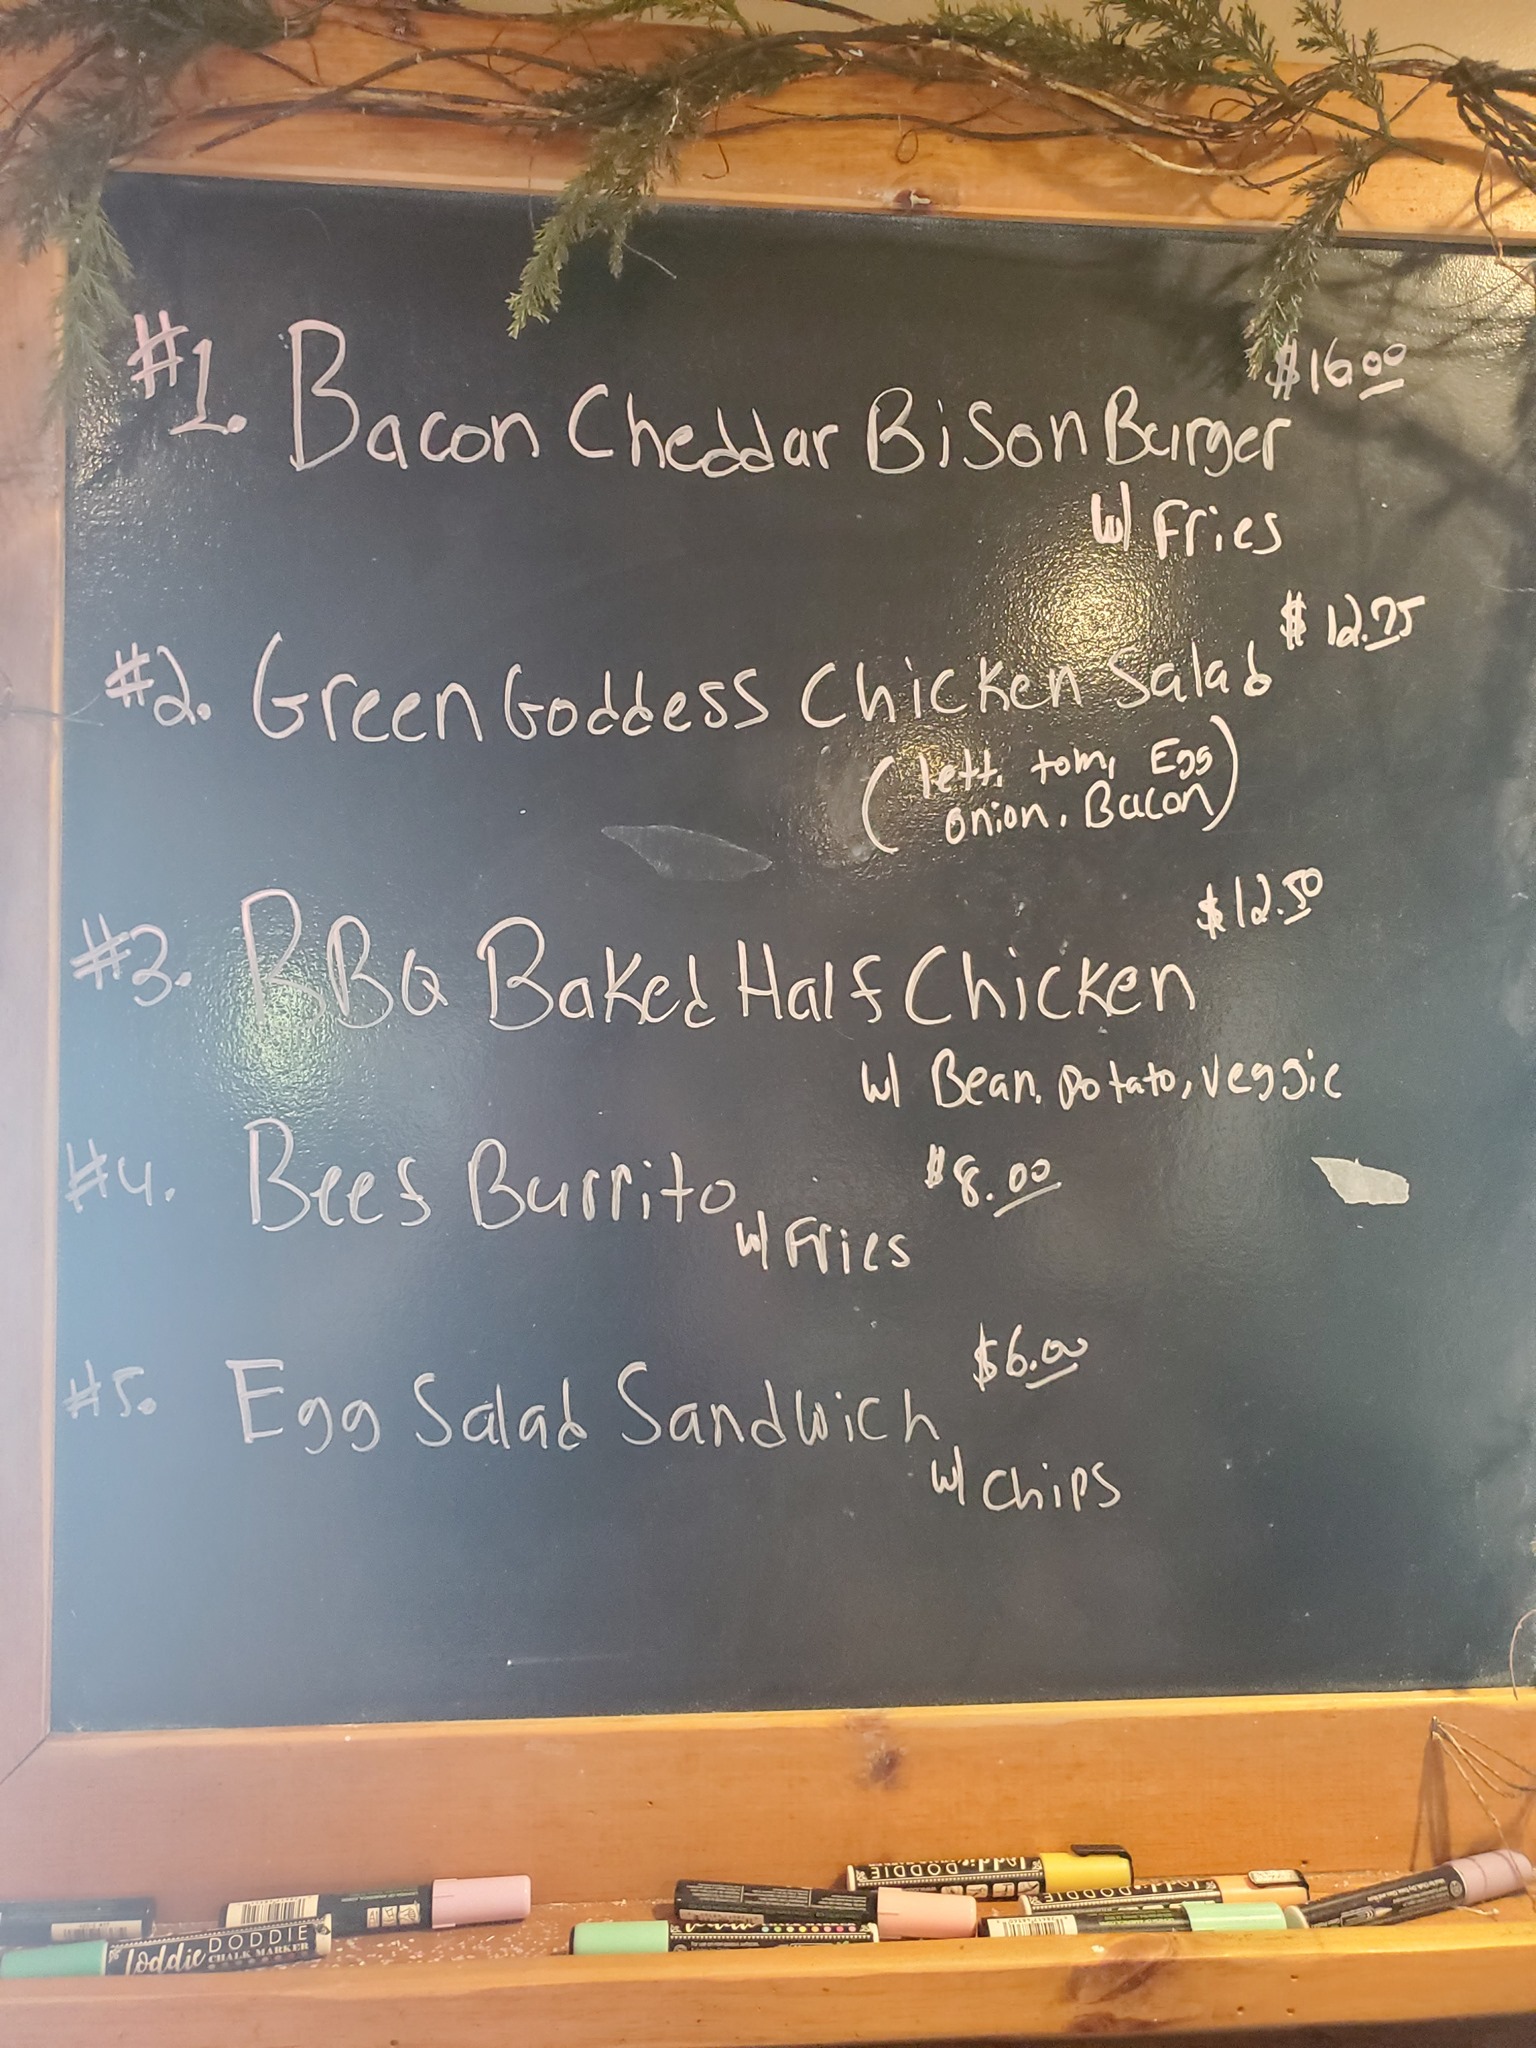 #1. Bacon Cheddar Bison Burger $16.00
w/ Fries
#2. Green Goddess Chicken Salad $12.75
(lett, tom, Egg
onion, Bacon)
#3. BBQ Baked Half Chicken $12.50
w/ Bean, potato, veggie
#4. Beef Burrito $8.00
w/ Fries
#5. Egg Salad Sandwich $6.00
w/ Chips
Loddie DODDIE
Loddie DODDIE
Loddie DODDIE
CHALK MARKER